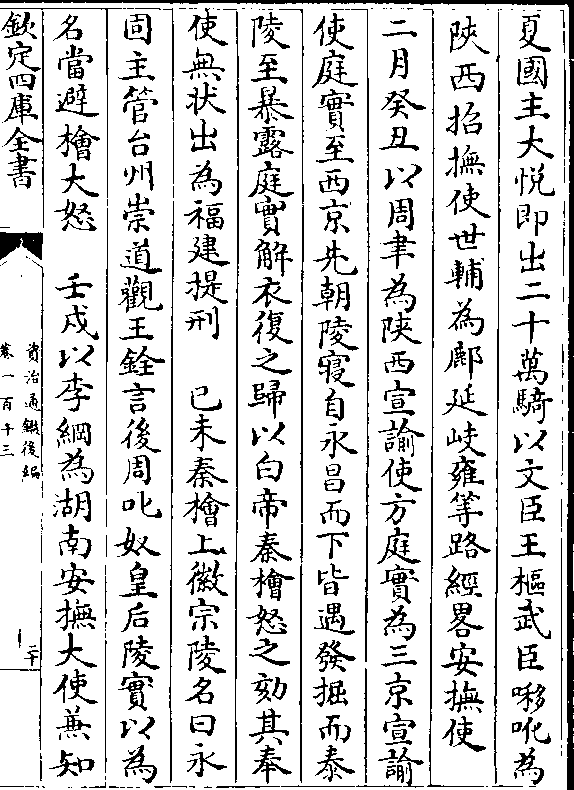 夏國主大悦即出二十萬騎以文臣王樞武臣㖼吪為
陜西招撫使世輔為鄜延岐雍等路經畧安撫使
二月癸丑以周聿為陜西宣諭使方庭實為三京宣諭
使庭實至西京先朝陵寢自永昌而下皆遇發掘而泰
陵至暴露庭實解衣復之歸以白帝秦檜怒之劾其奉
使無狀出為福建提刑　已未秦檜上徽宗陵名曰永
固主管台州崇道觀王銍言後周叱奴皇后陵實以為
名當避檜大怒　壬戌以李綱為湖南安撫大使兼知
欽定四庫全書
資治通鑑後編
卷一百十三
二十